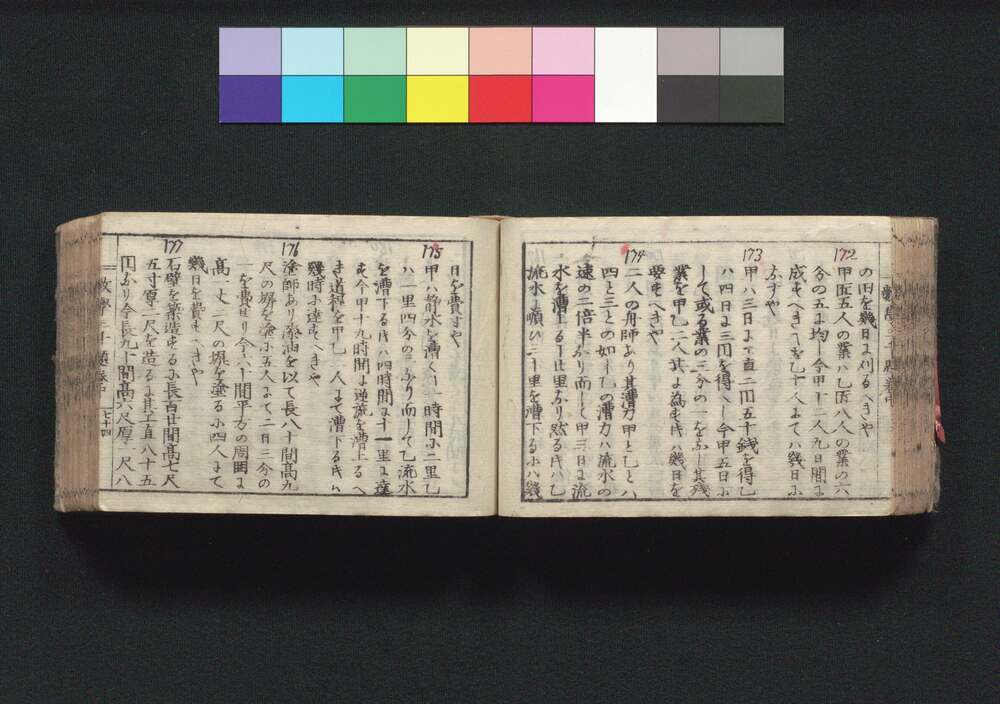 の田を幾日に刈るべきや
172
甲匠五人の業ハ乙匠八人の業の六
分の五に均し今甲十二人九日間に
成すべき
を乙十人にてハ幾日に
なすや
173
甲ハ三日にて直二円五十銭を得乙
ハ四日に三円を得
し今甲五日に
して或る業の三分の一をなし其残
業を甲乙二人其に為すハ幾日を
要すべきや
174
二人の舟師あり其漕力甲と乙とハ
四と三との如し乙の漕力ハ流水の
速の二倍半なり而して甲三日に流
水を漕上る
十世里なり然る時ハ乙
流水に順ひ二十里を漕下るにハ幾
日を費すや
175
甲ハ静水を漕
一時間に二里乙
ハ一里四分の三なり而して乙流水
を漕下る時ハ四時間に十一里に達
す今甲十九時間に逆流を漕上るへ
き道程を甲乙二人にて漕下る時ハ
幾時に達すへきや
176
塗師あり漆油を以て長八十間高九
尺の塀を塗に五人にて二日三分の
一を費せり今六十間平方の周囲に
高一丈二尺の塀を塗る小四人にて
幾日を費すへきや
177
石壁を築造するに長百廿間高七尺
五寸厚二尺を造るに其工直八十五
円なり今長九十間高六尺厚一尺八
数学三千題巻中
七十四